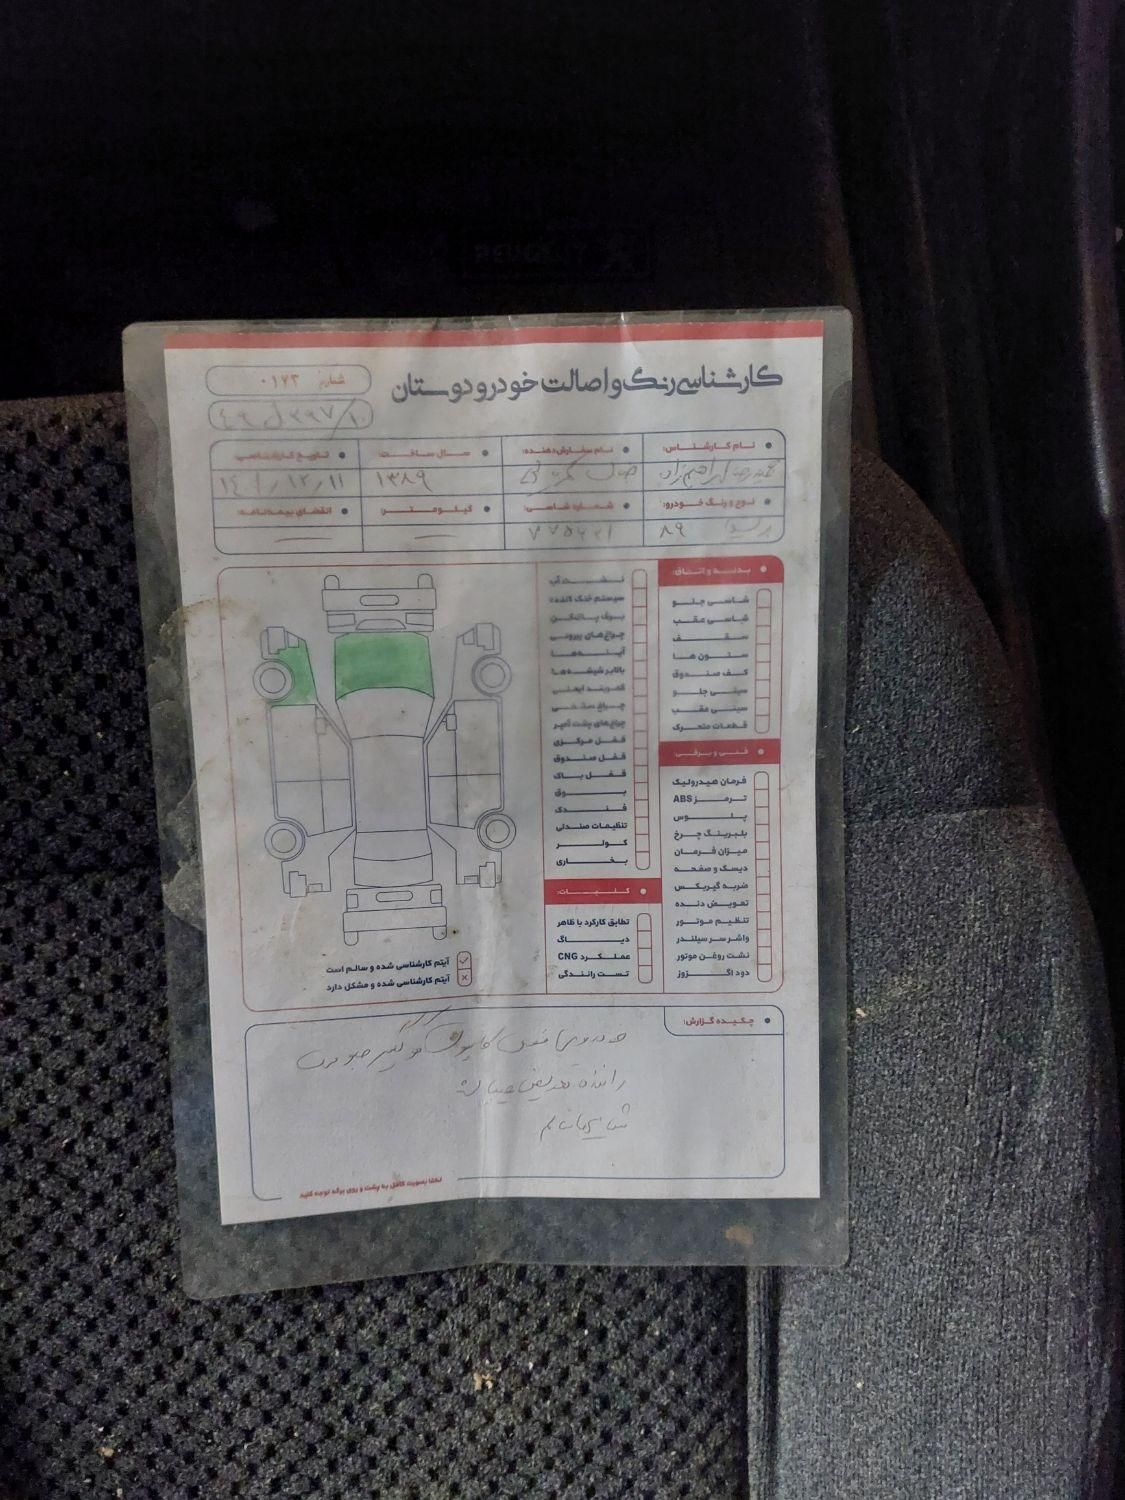 کارشناسی رنگ و اصالت خودرو دوستان
شماره: ۰۱۷۳
نام کارشناس: نام سفارش دهنده: سال ساخت: تاریخ کارشناسی:
۱۳۸۹ ۱۴۰۱/۱۲/۱۱
نوع و رنگ خودرو: شماره شاسی: کیلومتر: انقضای بیمه‌نامه:
۸۹
بدنه و اتاق:
شاسی جلو
شاسی عقب
سقف
ستون ها
کف صندوق
سینی جلو
سینی عقب
قطعات متحرک
فنی و برقی:
فرمان هیدرولیک
ترمز ABS
پلوس
بلبرینگ چرخ
میزان فرمان
دیسک و صفحه
ضربه گیربکس
تعویض دنده
تنظیم موتور
واشر سر سیلندر
نشت روغن موتور
دود اگزوز
نشت آب
سیستم خنک کننده
برف پاک‌کن
چراغ های بیرونی
آینه ها
بالابر شیشه ها
کمربند ایمنی
چراغ سقفی
چراغ های پشت آمپر
قفل مرکزی
قفل صندوق
قفل باک
بوق
فندک
تنظیمات صندلی
کولر
بخاری
کلیات:
تطابق کارکرد با ظاهر
دیاگ
عملکرد CNG
تست رانندگی
آیتم کارشناسی شده و سالم است
آیتم کارشناسی شده و مشکل دارد
چکیده گزارش:
کاپوت گلگیر جلو سمت
راننده تعویض
لطفا بصورت کامل به پشت و روی برگه توجه کنید